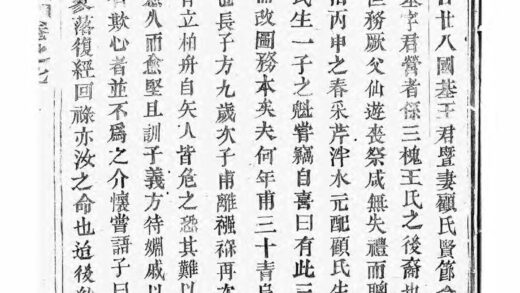 廿八國基王君暨妻顧氏賢節合
基字君營者係三槐王氏之後裔也
世務厥父仙遊喪祭咸無失禮而聰
括丙申之春采芹泮水元配顧氏生
氏生一子之魁嘗竊自喜曰有此三
器政圖務本矣夫何年甫三十青烏
也長子方九歲次子甫離襁褓再次
有立柏舟自矢人皆危之恐其難以
久而愈堅且訓子義方待嫺戚以
有欺心者並不爲之介懷嘗語子曰
家落復經回祿亦汝之命也迨後